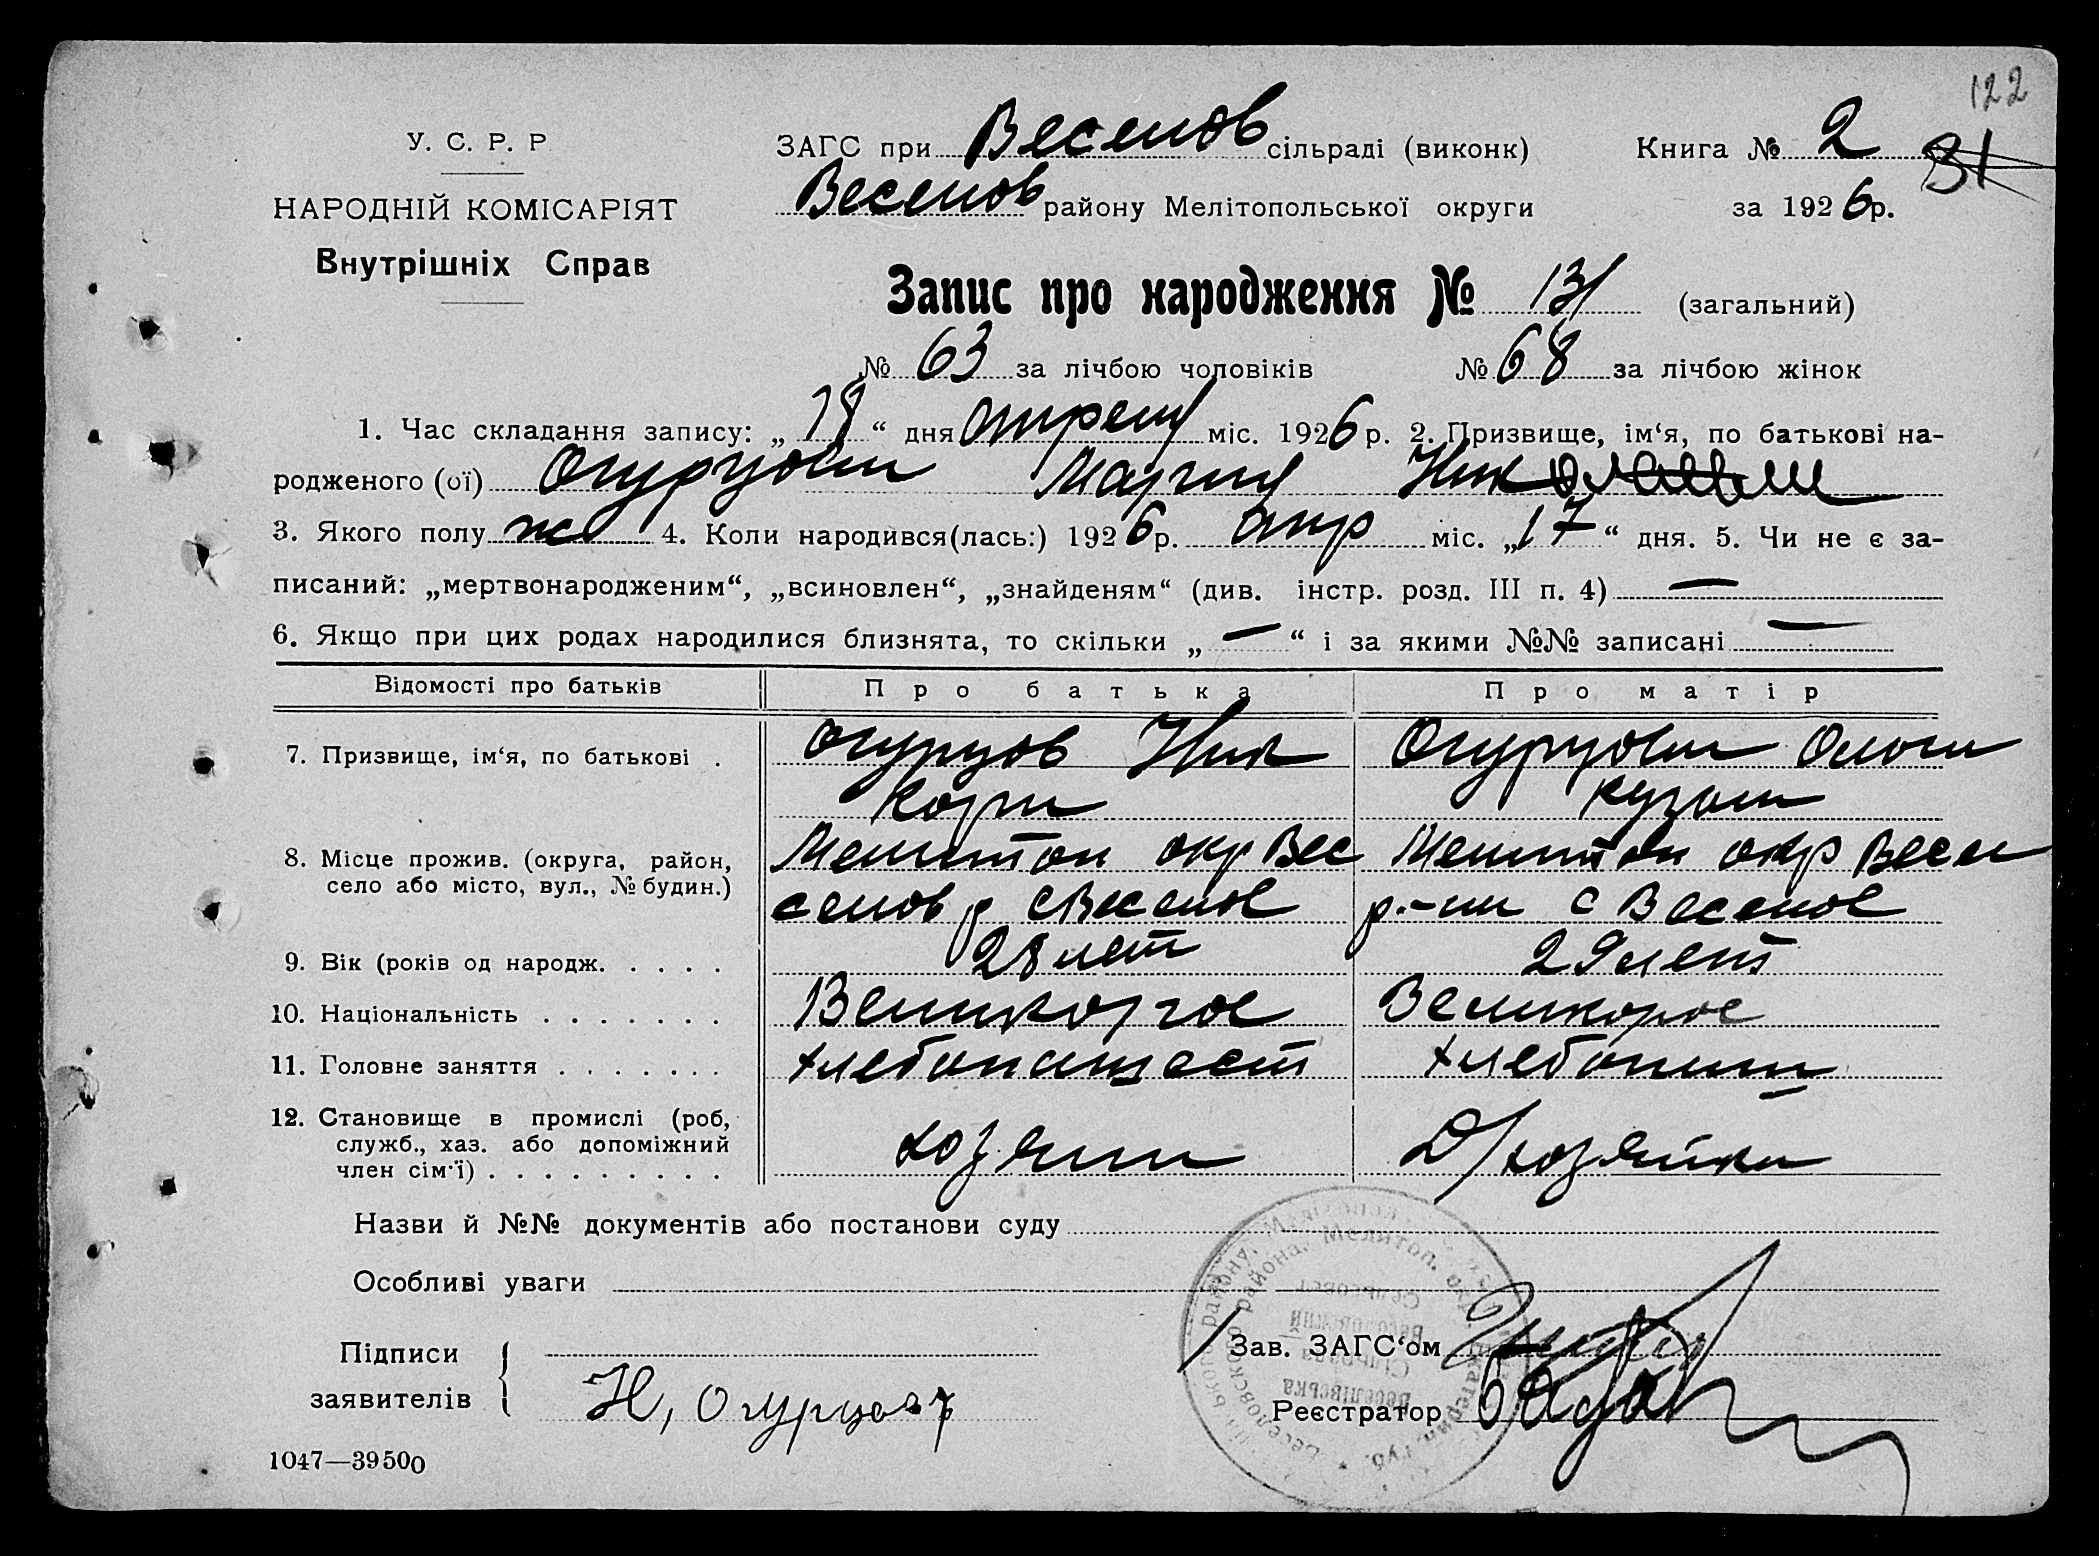 122
У. С. Р. Р
НАРОДНІЙ КОМІСАРІЯТ
Внутрішніх Справ
ЗАГС при Веселов сільраді (виконк)
Книга № 2
31
Веселов району Мелітопольської округи
за 1926р.
Запис про народження № 131 (загальний)
№ 63 за лічбою чоловіків № 68 за лічбою жінок
1. Час складання запису: „ 18 “ дня апреля міс. 1926 р. 2. Призвище, ім‘я, по батькові на-
родженого (ої) Огурцова Мария
3. Якого полу ж 4. Коли народився(лась:) 1926р. апр міс. „17“ дня. 5. Чи не є за-
писаний: „мертвонародженим“, „всиновлен“, „знайденям“ (див. інстр. розд. III п. 4) —
6. Якщо при цих родах народилися близнята, то скільки „ — “ і за якими №№ записані —
Відомості про батьків Про батька Про матір
7. Призвище, ім‘я, по батькові . Огурцов Ник Огурцова
8. Місце прожив. (округа, район, Мелитоп окр Вес Мелитоп окр Весел
село або місто, вул., № будин.) селов р с Веселое р-на с Веселое
9. Вік (років од народж. . . . . 28 лет 29 лет
10. Національність . . . . . . . Великорос Великорос
11. Головне заняття . . . . . . . хлебопашест хлебопаш
12. Становище в промислі (роб,
служб., хаз. або допоміжний
член сім‘ї) . . . . . . . . . хозяин Д/хозяйка
Назви й №№ документів або постанови суду
Особливі уваги
Підписи
заявителів
Н, Огурцов
Зав. ЗАГС‘ом
Реєстратор
Веселовский
Сельсовет
Веселівська
Сільрада
1047—39500